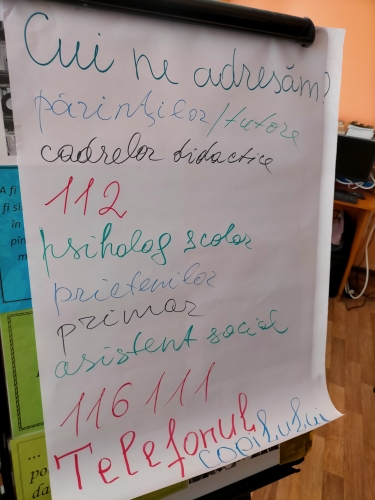 Cui ne adresăm?
părinților/tutore
cadrelor didactice
112
psiholog școlar
prietenilor
primar
asistent social
116 111
Telefonul copilului
A fi
fi si
in
pin
m
...
po
da